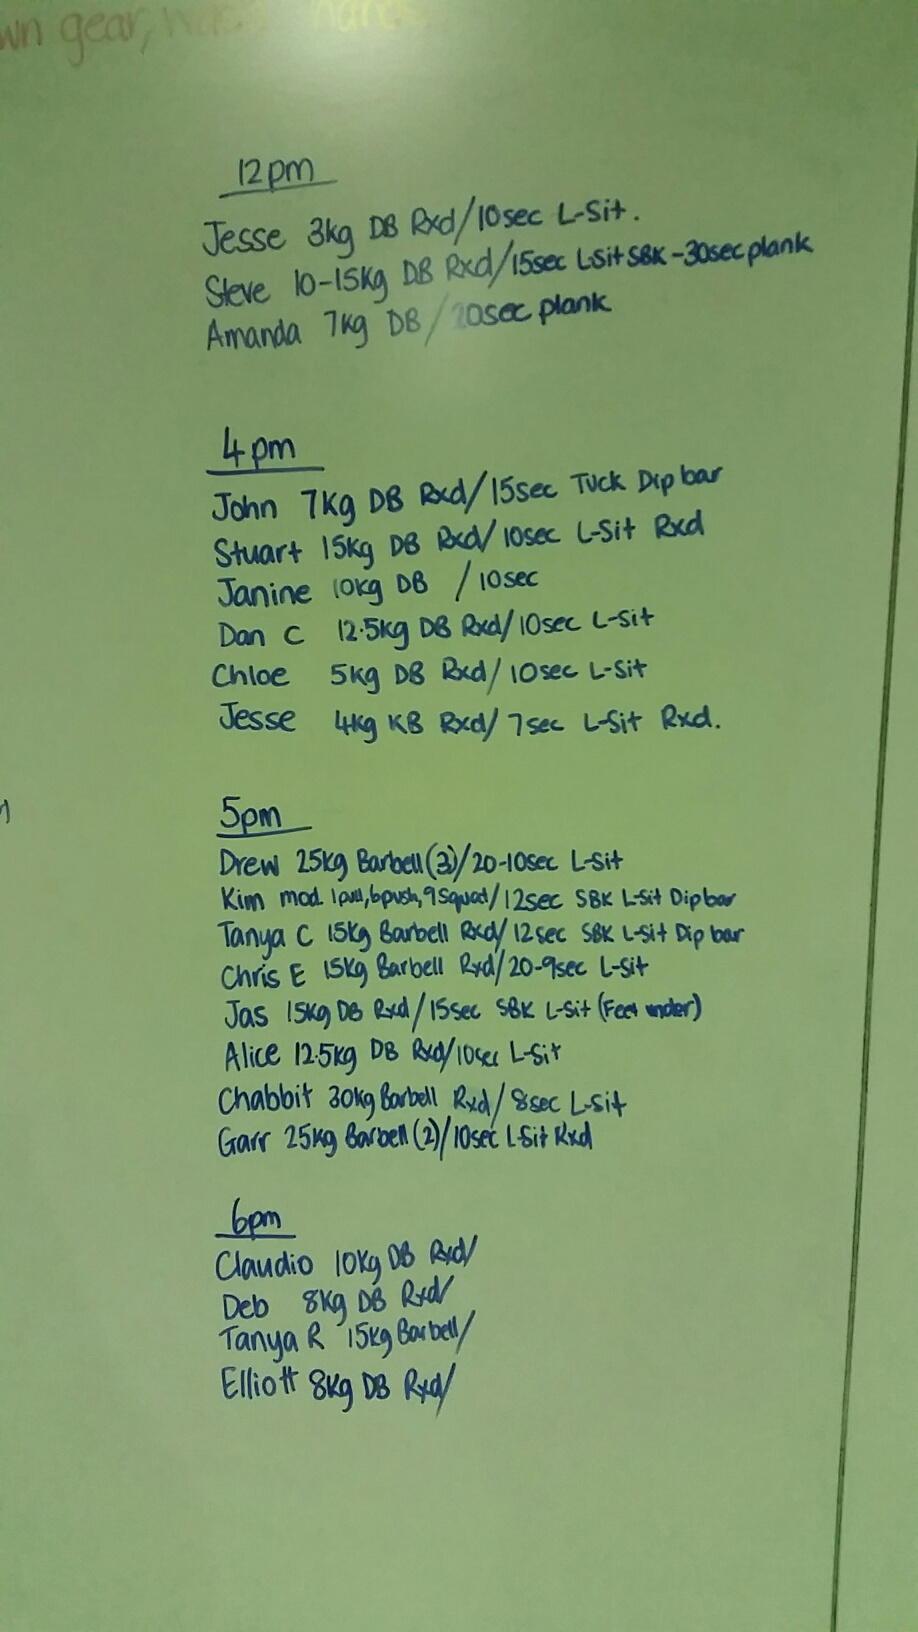 wn gear, hands
12pm
Jesse 3kg DB Rxd/10sec L-Sit.
Steve 10-15kg DB Rxd/15sec LSit SBK-30sec plank
Amanda 7kg DB / 20sec plank
4pm
John 7kg DB Rxd/15sec Tuck Dip bar
Stuart 15kg DB Rxd/10sec L-Sit Rxd
Janine 10kg DB / 10sec
Dan C 12.5kg DB Rxd/10sec L-Sit
Chloe 5kg DB Rxd/10sec L-Sit
Jesse 4kg KB Rxd/7sec L-Sit Rxd.
5pm
Drew 25kg Barbell(3)/20-10sec L-Sit
Kim mod. 1pull,6push,9Squat/12sec SBK L-Sit Dip bar
Tanya C 15kg Barbell Rxd/12sec SBK L-Sit Dip bar
Chris E 15kg Barbell Rxd/20-9sec L-Sit
Jas 15kg DB Rxd/15sec SBK L-Sit (Feet under)
Alice 12.5kg DB Rxd/10sec L-Sit
Chabbit 30kg Barbell Rxd/8sec L-Sit
Garr 25kg Barbell(2)/10sec L-Sit Rxd
6pm
Claudio 10kg DB Rxd/
Deb 8kg DB Rxd/
Tanya R 15kg Barbell/
Elliott 8kg DB Rxd/